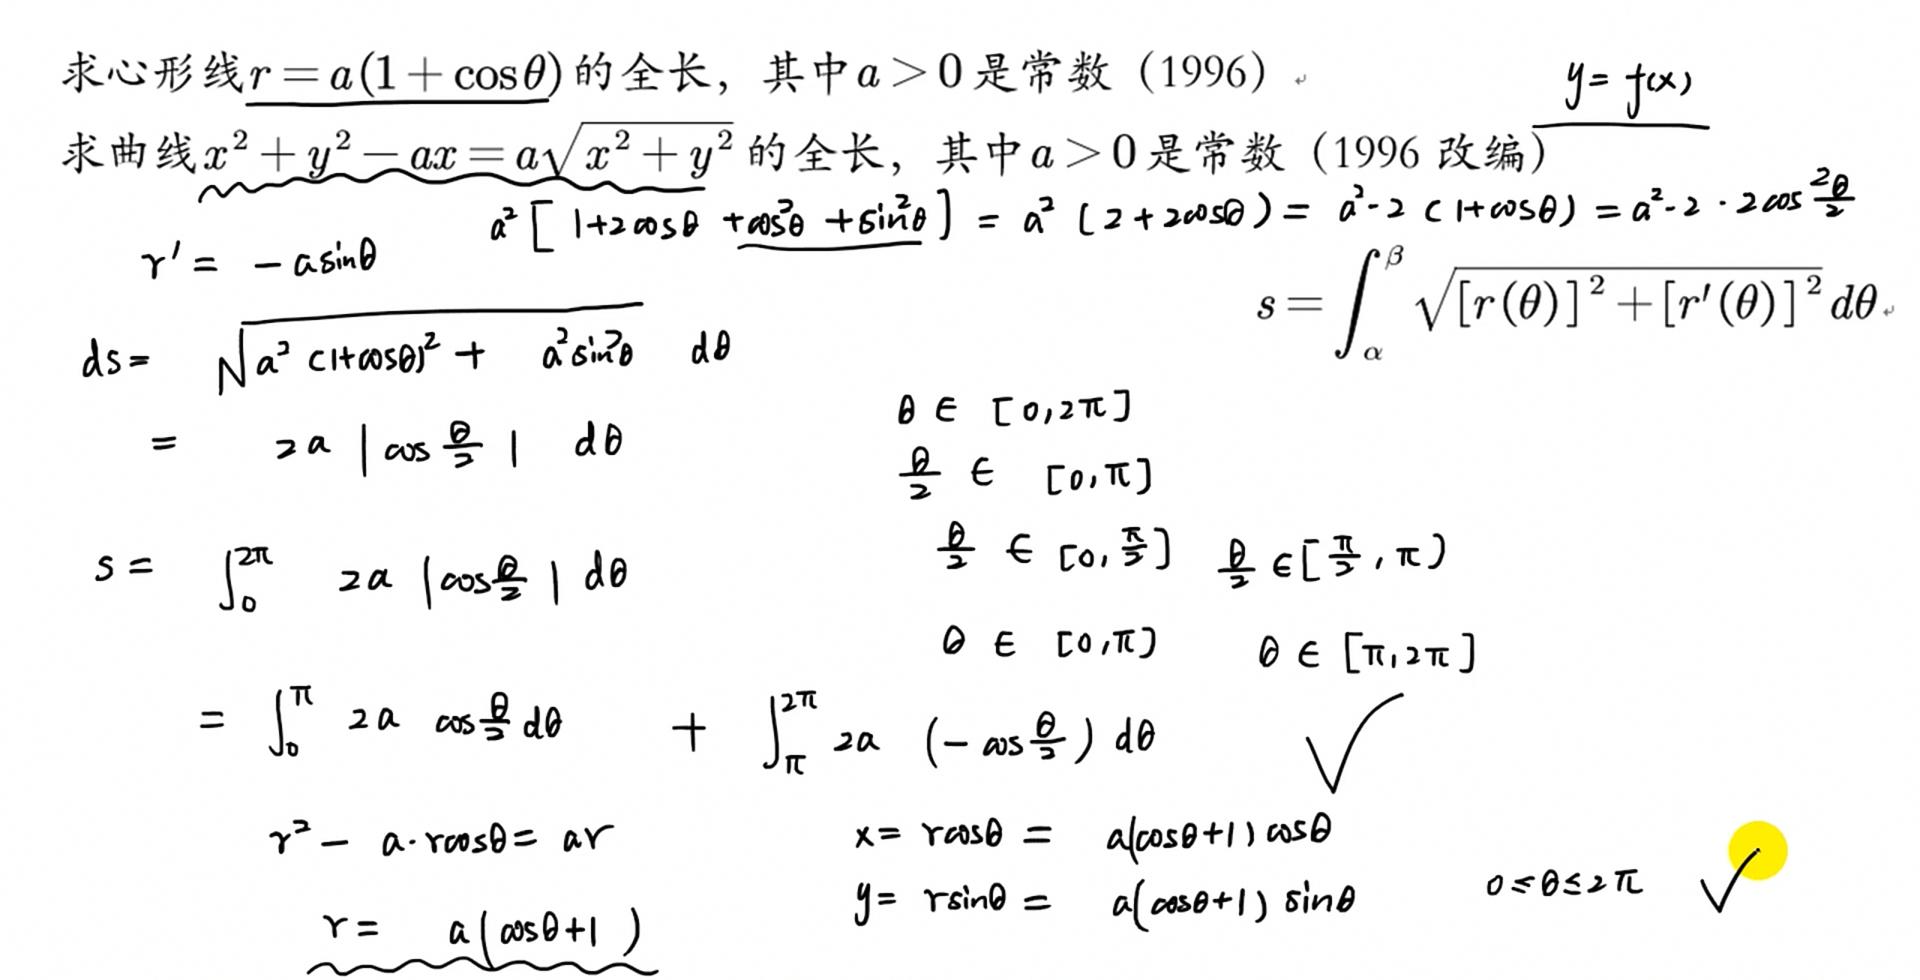 求心形线r=a(1+cosθ)的全长，其中a>0是常数（1996）
y=f(x)
求曲线x²+y²-ax=a√(x²+y²)的全长，其中a>0是常数（1996 改编）
a²[1+2cosθ+cos²θ+sin²θ]=a²(2+2cosθ)=a²·2(1+cosθ)=a²·2·2cos²θ/2
r'=-asinθ
s=∫_α^β √([r(θ)]²+[r'(θ)]²)dθ
ds=√(a²(1+cosθ)²+a²sin²θ) dθ
=2a|cosθ/2|dθ
θ∈[0,2π]
θ/2∈[0,π]
s=∫_0^2π 2a|cosθ/2|dθ
θ/2∈[0,π/2] θ/2∈[π/2,π)
θ∈[0,π) θ∈[π,2π]
=∫_0^π 2a cosθ/2 dθ + ∫_π^2π 2a(-cosθ/2)dθ
r²-a·rcosθ=ar
x=rcosθ=a(cosθ+1)cosθ
y=rsinθ=a(cosθ+1)sinθ 0≤θ≤2π
r=a(cosθ+1)